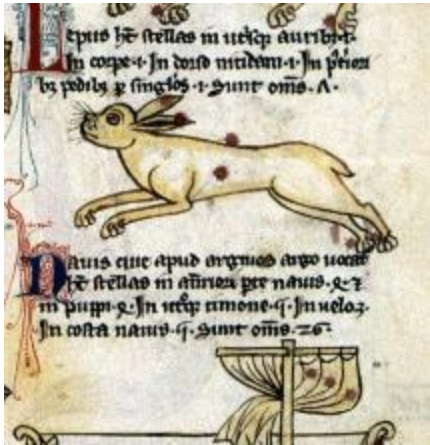 Lepus ht̄ stellas in utsqȝ auribȝ·i·
In corpe·i· In dorso nitidam·i· In p̄riori
bȝ pedibȝ ꝑ singlos·i· Sunt om̄s·Λ·
Navis que apud argivos argo vocat᷑
ht̄ stellas in pte navis·
in puppi· In utroqȝ timone·q̄· In velo·3·
In costa navis·q̄· Sunt om̄s·26·